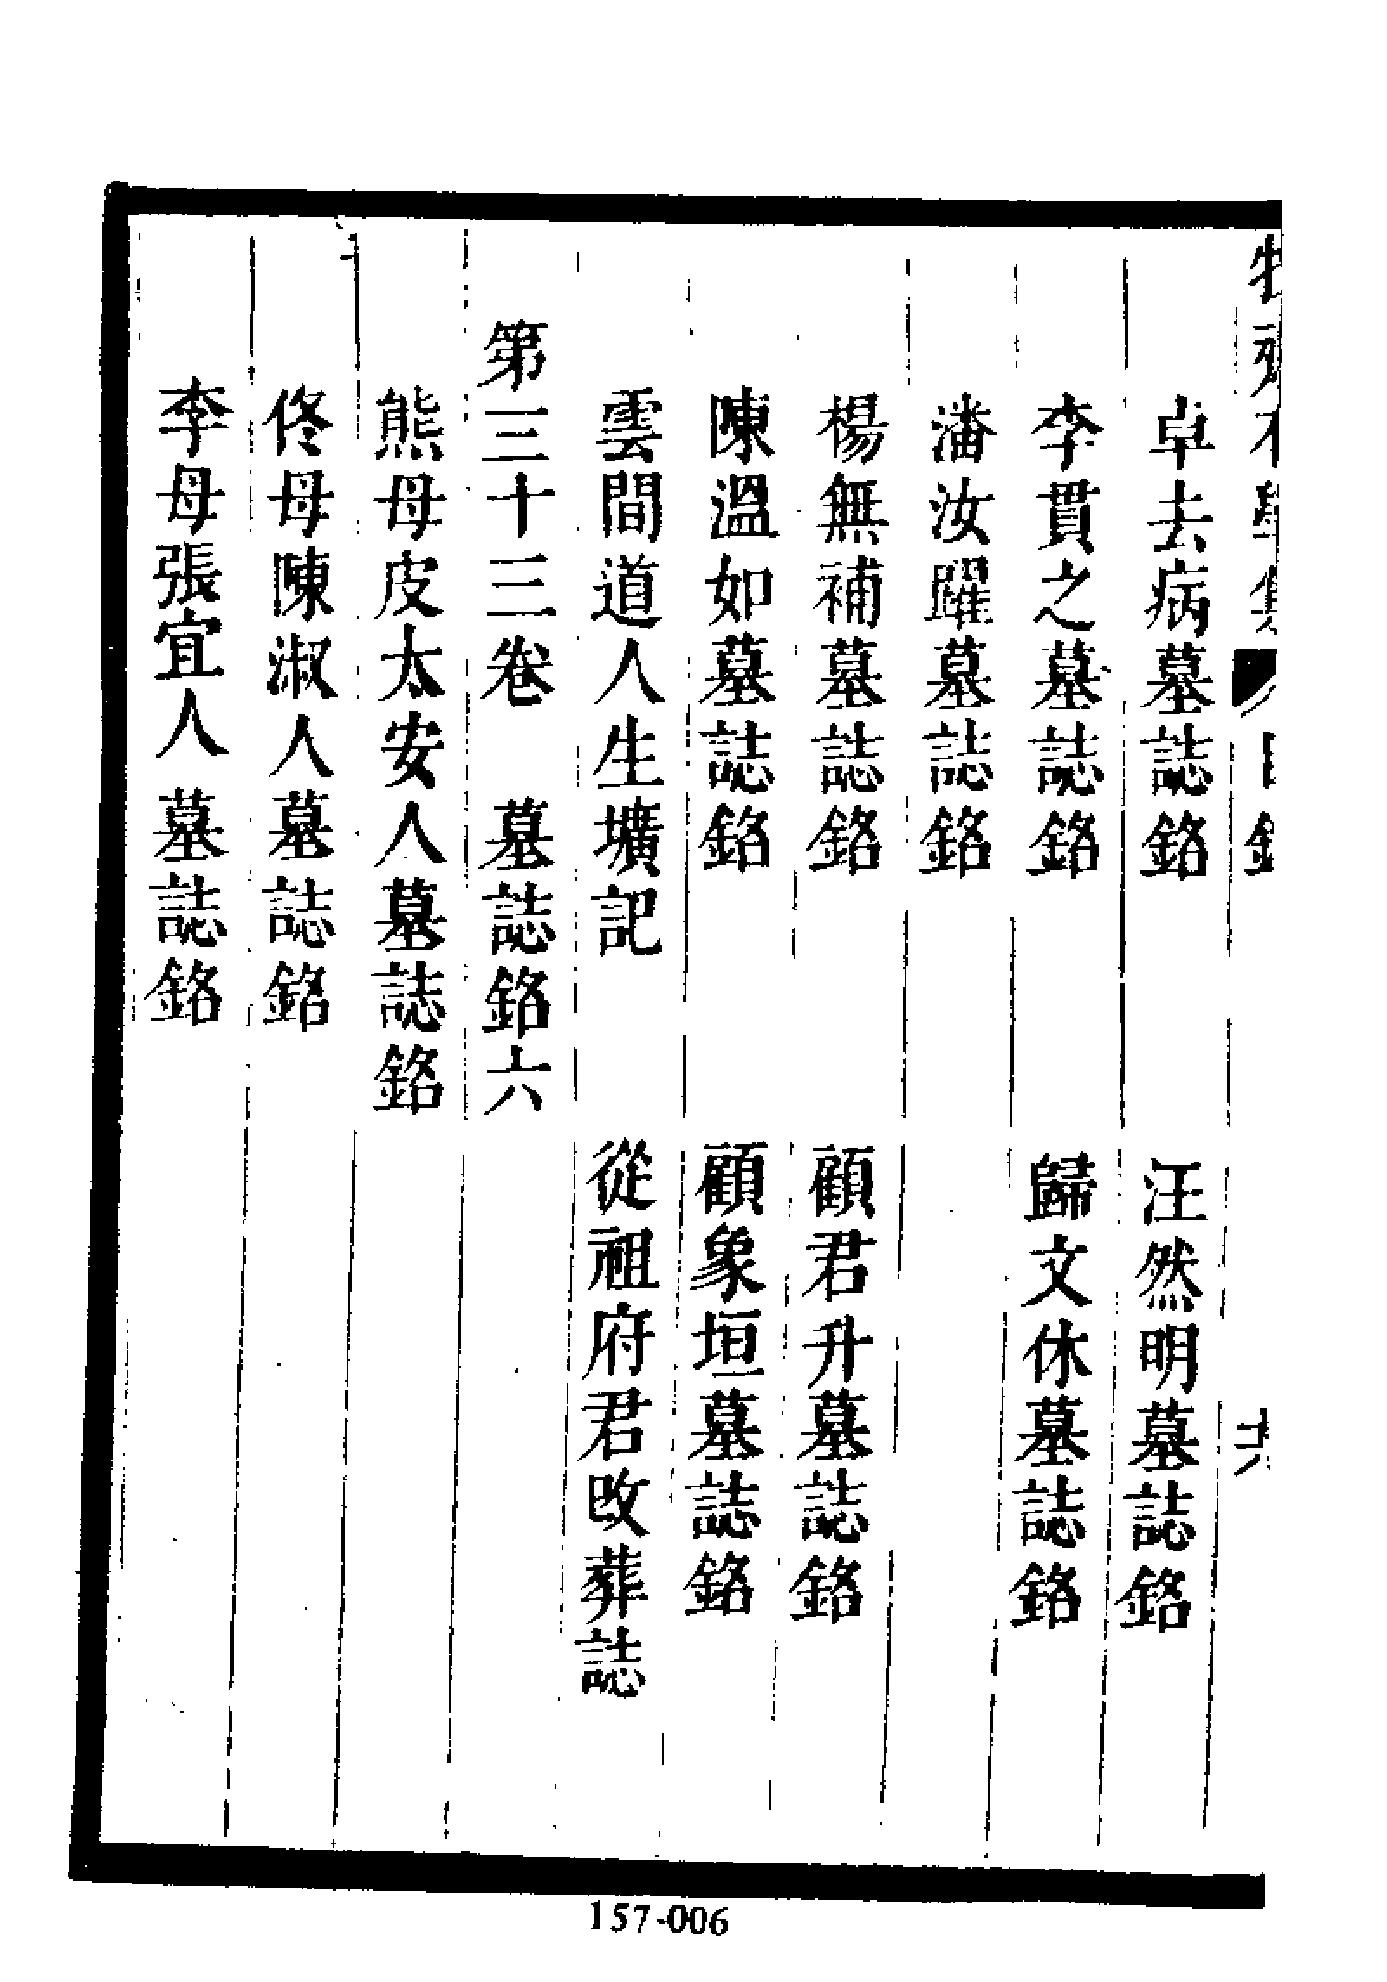 牧齋有學集 目錄 六
卓去病墓誌銘 汪然明墓誌銘
李貫之墓誌銘 歸文休墓誌銘
潘汝躍墓誌銘
楊無補墓誌銘 顧君升墓誌銘
陳溫如墓誌銘 顧象垣墓誌銘
雲間道人生壙記 從祖府君改葬誌
第三十三卷 墓誌銘六
熊母皮太安人墓誌銘
佟母陳淑人墓誌銘
李母張宜人墓誌銘
157-006